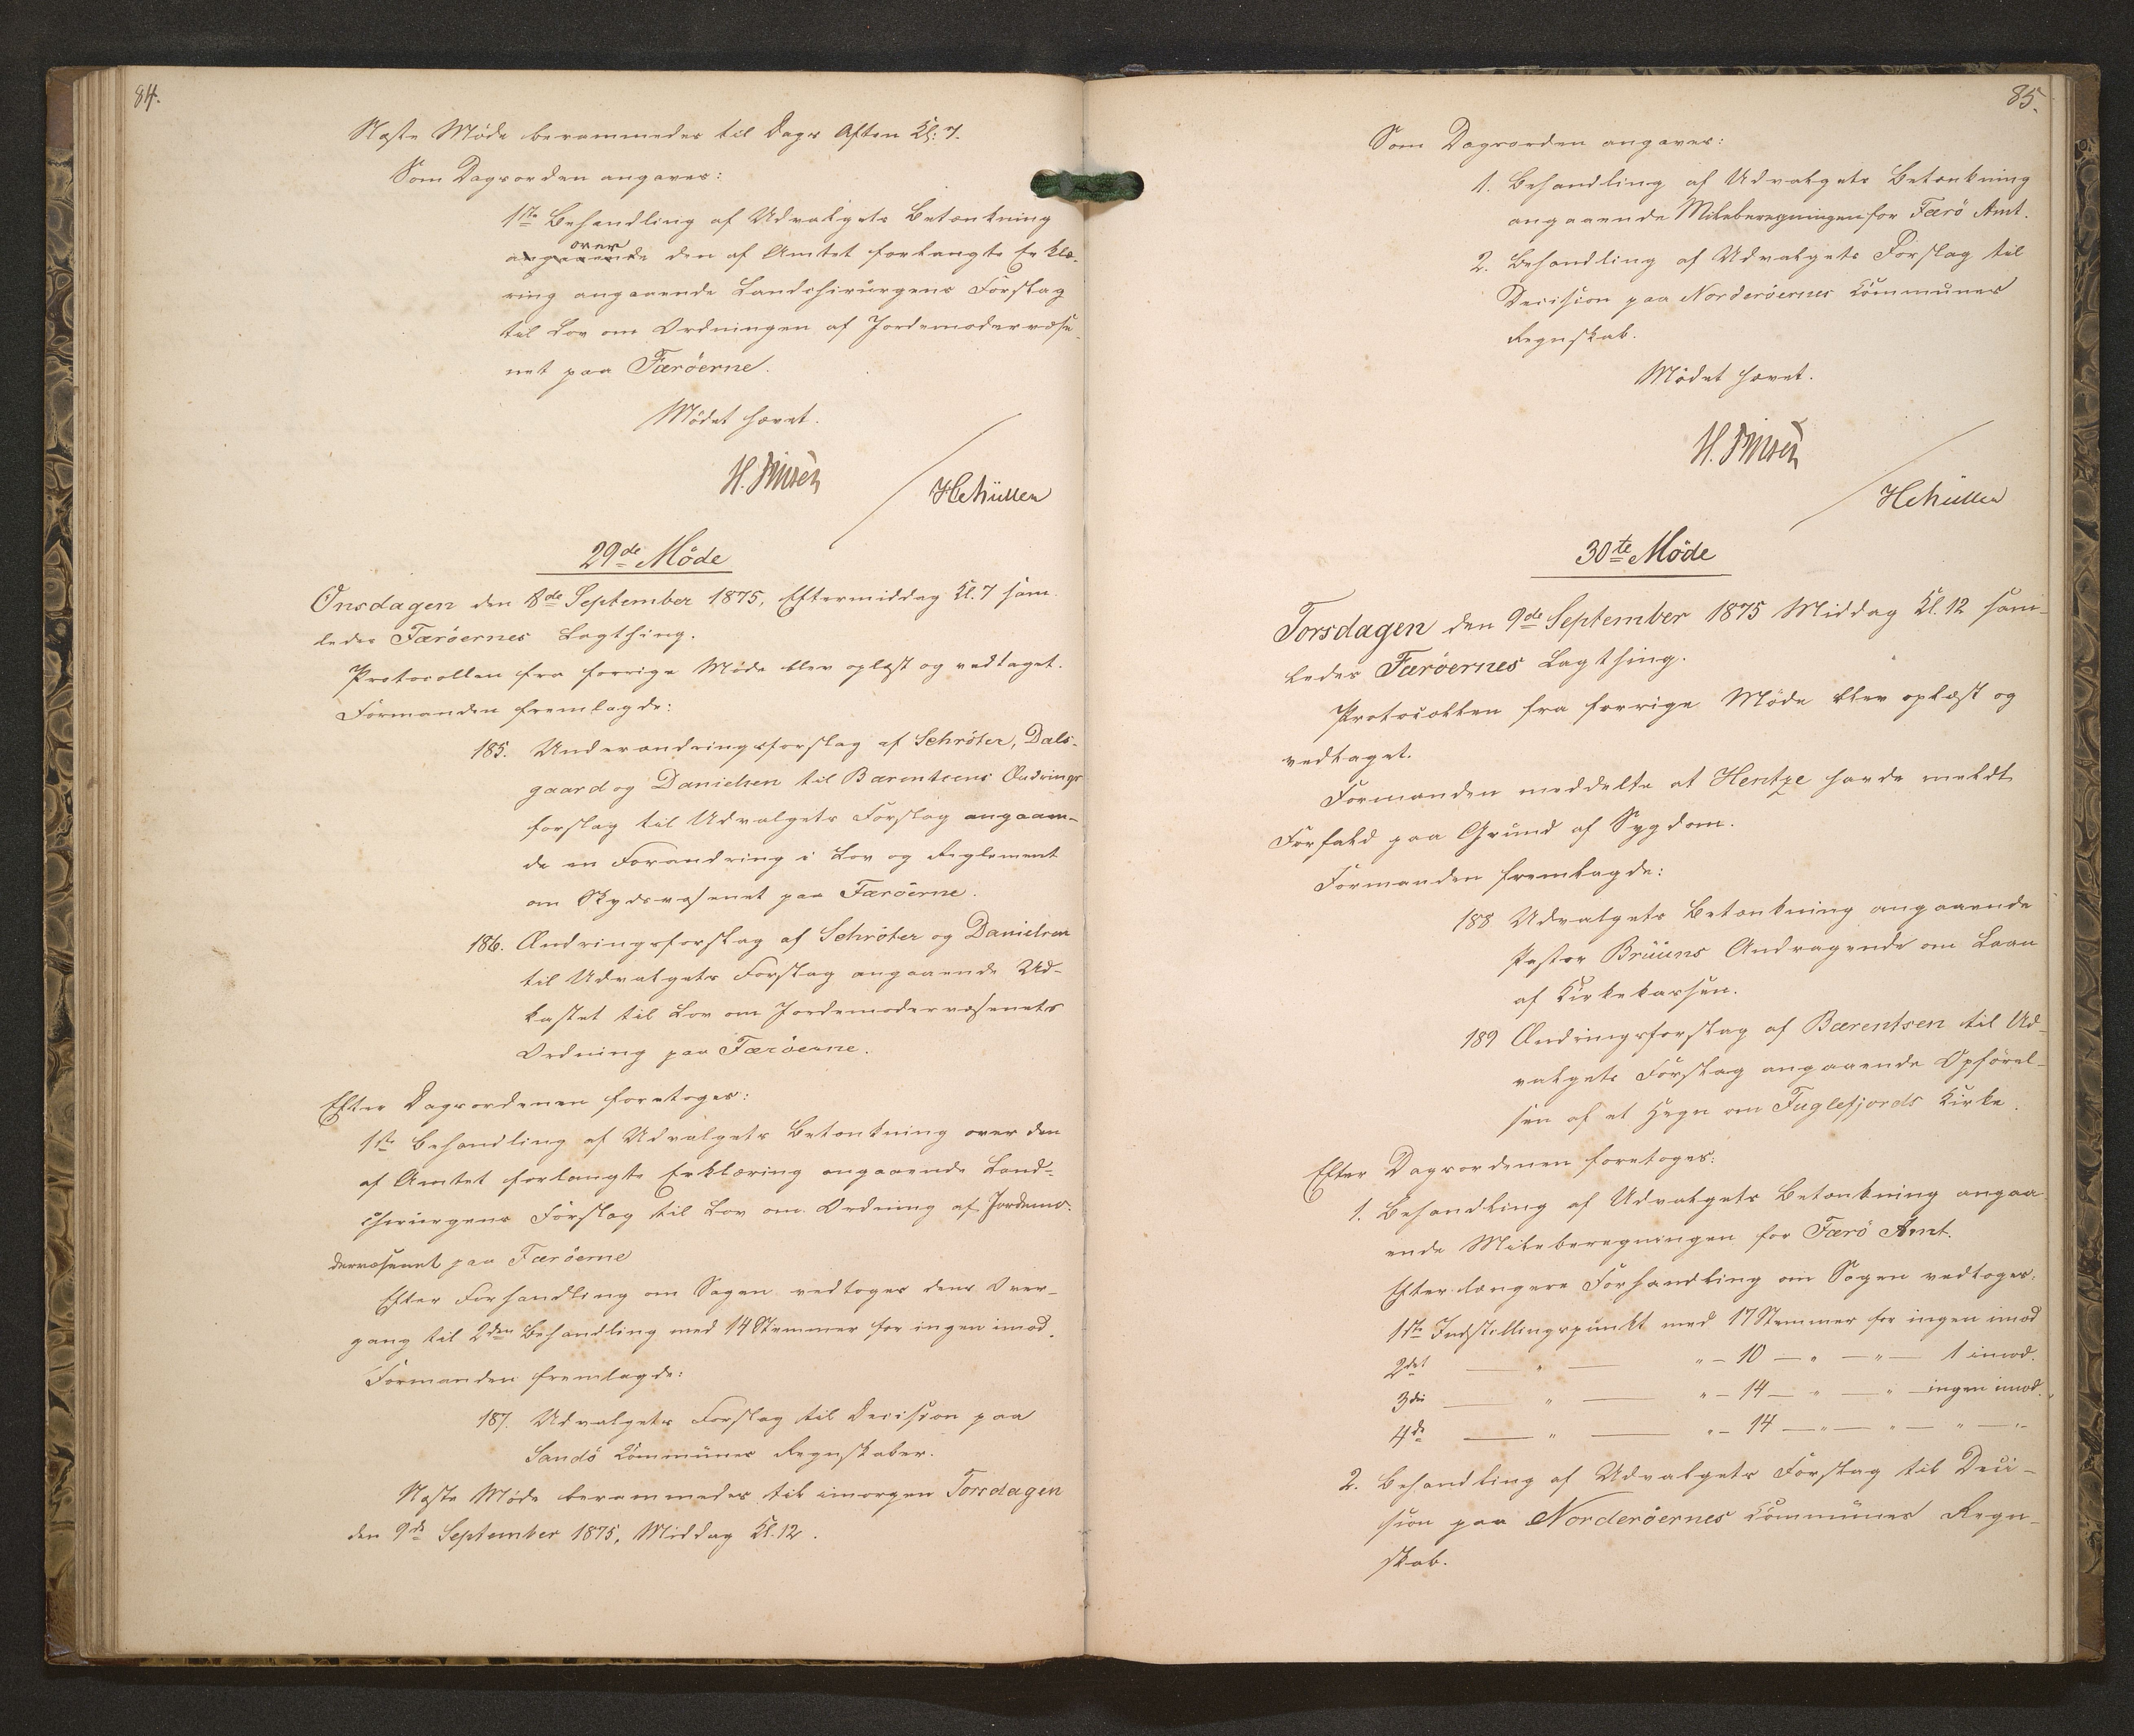 84.
Næste Möde berammedes til Dags Aften Kl: 7.
Som Dagsorden angaves:
1ste Behandling af Udvalgets Betænkning
over
angaaende den af Amtet forlangte Erklæ-
ring angaaende Landchirurgens Forslag
til Lov om Ordningen af Jordemodervæse-
net paa Færöerne.
Mödet hævet.
H. Finsen
HCMüller
29de Möde
Onsdagen den 8de September 1875, Eftermiddag Kl. 7 sam-
ledes Færöernes Lagthing.
Protocollen fra forrige Möde blev oplæst og vedtaget.
Formanden fremlagde:
185. Underændringsforslag af Schröter, Dals-
gaard og Danielsen til Bærentsens Ændrings
forslag til Udvalgets Forslag angaaen-
de en Forandring i Lov og Reglement
om Skydsvæsenet paa Færöerne.
186. Ændringsforslag af Schröter og Danielsen
til Udvalgets Forslag angaaende Ud-
kastet til Lov om Jordemodervæsenets
Ordning paa Færöerne.
Efter Dagsordenen foretoges:
1ste Behandling af Udvalgets Betænkning over den
af Amtet forlangte Erklæring angaaende Land-
chirurgens Forslag til Lov om Ordning af Jordemo-
dervæsenet paa Færöerne
Efter Forhandling om Sagen vedtoges dens Over-
gang til 2den Behandling med 14 Stemmer for ingen imod.
Formanden fremlagde:
187. Udvalgets Forslag til Decision paa
Sandö Kommunes Regnskaber.
Næste Möde berammedes til imorgen Torsdagen
den 9de September 1875, Middag Kl. 12.
85.
Som Dagsorden angaves:
1. Behandling af Udvalgets Betænkning
angaaende Mileberegningen for Færö Amt.
2. Behandling af Udvalgets Forslag til
Decision paa Norderöernes Kommunes
Regnskab.
Mödet hævet.
H. Finsen
HCMüller
30te Möde
Torsdagen den 9de September 1875 Middag Kl. 12 sam-
ledes Færöernes Lagthing.
Protocollen fra forrige Möde blev oplæst og
vedtaget.
Formanden meddelte at Hentze havde meldt
Forfald paa Grund af Sygdom.
Formanden fremlagde:
188 Udvalgets Betænkning angaaende
Pastor Bruuns Andragende om Laan
af Kirkekassen.
189 Ændringsforslag af Bærentsen til Ud-
valgets Forslag angaaende Opförel-
sen af et Hegn om Fuglefjords Kirke.
Efter Dagsordenen foretoges:
1. Behandling af Udvalgets Betænkning angaa
ende Mileberegningen for Færö Amt.
Efter længere Forhandling om Sagen vedtoges:
1ste Indstillingspunkt med 17 Stemmer for ingen imod
2det — " — " — 10 — " — " — 1 imod.
3die — " — " — 14 — " — " — ingen imod.
4de — " — " — 14 — " — " — " — " —
2. Behandling af Udvalgets Forslag til Deci-
sion paa Norderöernes Kommunes Regn-
skab.